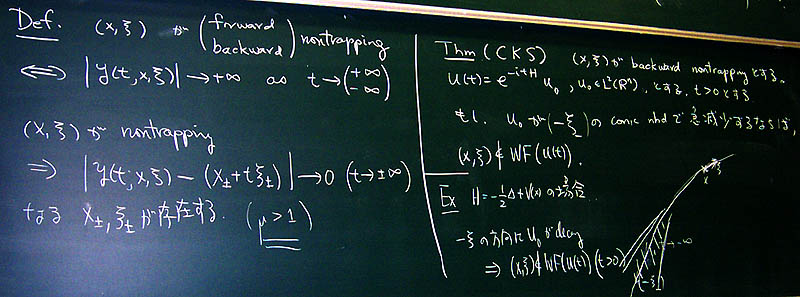 Def. (x, ξ) が (forward
backward) nontrapping
⟺ |y(t, x, ξ)| → +∞ as t → (+∞
−∞)
(x, ξ) が nontrapping
⟹ |y(t; x, ξ) − (x± + tξ±)| → 0 (t → ±∞)
なる x±, ξ± が存在する. (μ > 1)
Thm (CKS) (x, ξ) が backward nontrapping とする.
u(t) = e^{-itH} u₀, u₀ ∈ L²(Rⁿ), とする, t>0 とする
もし u₀ が (−ξ_) の conic nbd で 急減少するならば,
(x, ξ) ∉ WF(u(t)).
Ex H = −½Δ + V(x) の場合
−ξ の方向に u₀ が decay
⟹ (x, ξ) ∉ WF(u(t)) (t>0)
x
ξ
t → −∞
(−ξ_)